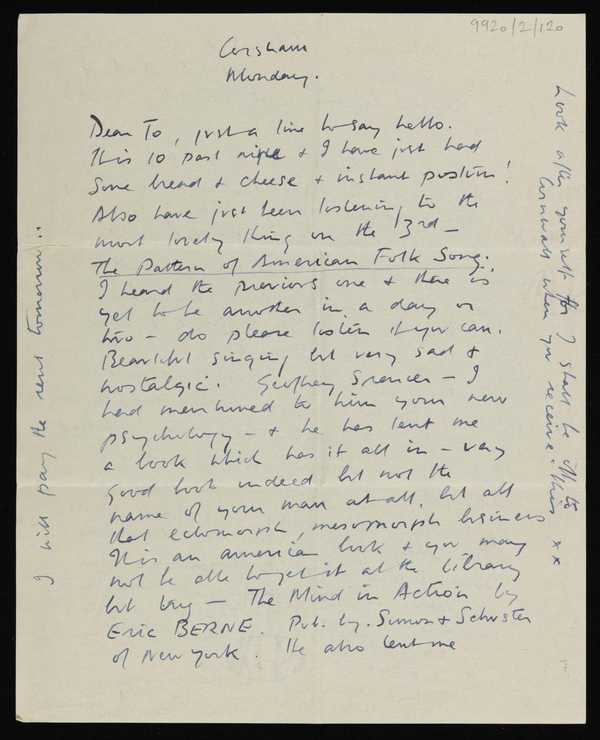 9920/2/120
Corsham
Monday.
Dear To, just a line to say hello.
It is 10 past nine & I have just had
some bread & cheese & instant postum!
Also have just been listening to the
most lovely thing on the 3rd –
The Pattern of American Folk Song.
I heard the previous one & there is
yet to be another in a day or
two – do please listen if you can.
Beautiful singing but very sad &
nostalgic. Geoffrey Spencer – I
had mentioned to him your new
psychology – & he has lent me
a book which has it all in – very
good book indeed but not the
name of your man at all, but all
that ectomorph, mesomorph business
It is an american book & you may
not be able to get it at the library
but try – The Mind in Action by
Eric BERNE. Pub. by. Simon & Schuster
of New York. He also lent me
Look after yourself for I shall be off to
Cornwall when you receive this x x
I will pay the rent tomorrow..